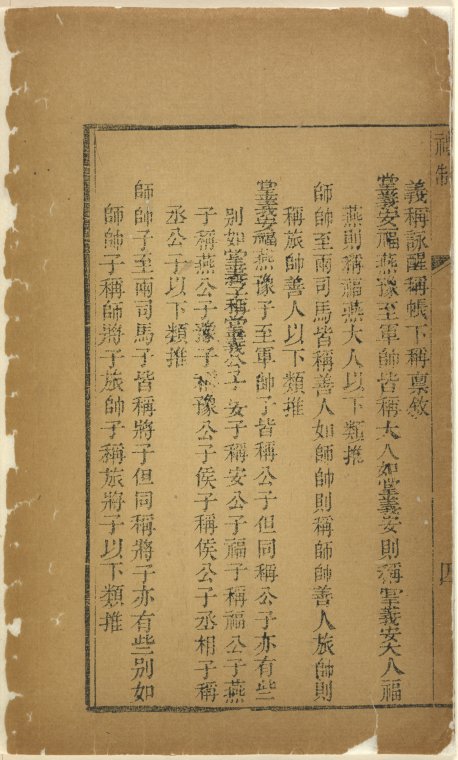 禮制
四
義稱詠醒瑀帳下稱稟敘
掌義安福燕豫至軍帥皆稱大人如掌義安則稱掌義安大人福
燕則稱福燕大人以下類推
師帥至兩司馬皆稱善人如師帥則稱師帥善人旅帥則
稱旅帥善人以下類推
掌義安福燕豫子至軍帥子皆稱公子但同稱公子亦有些
別如掌義子稱掌義公子安子稱安公子福子稱福公子燕
子稱燕公子豫子稱豫公子侯子稱侯公子丞相子稱
丞公子以下類推
師帥子至兩司馬子皆稱將子但同稱將子亦有些別如
師帥子稱師將子旅帥子稱旅將子以下類推